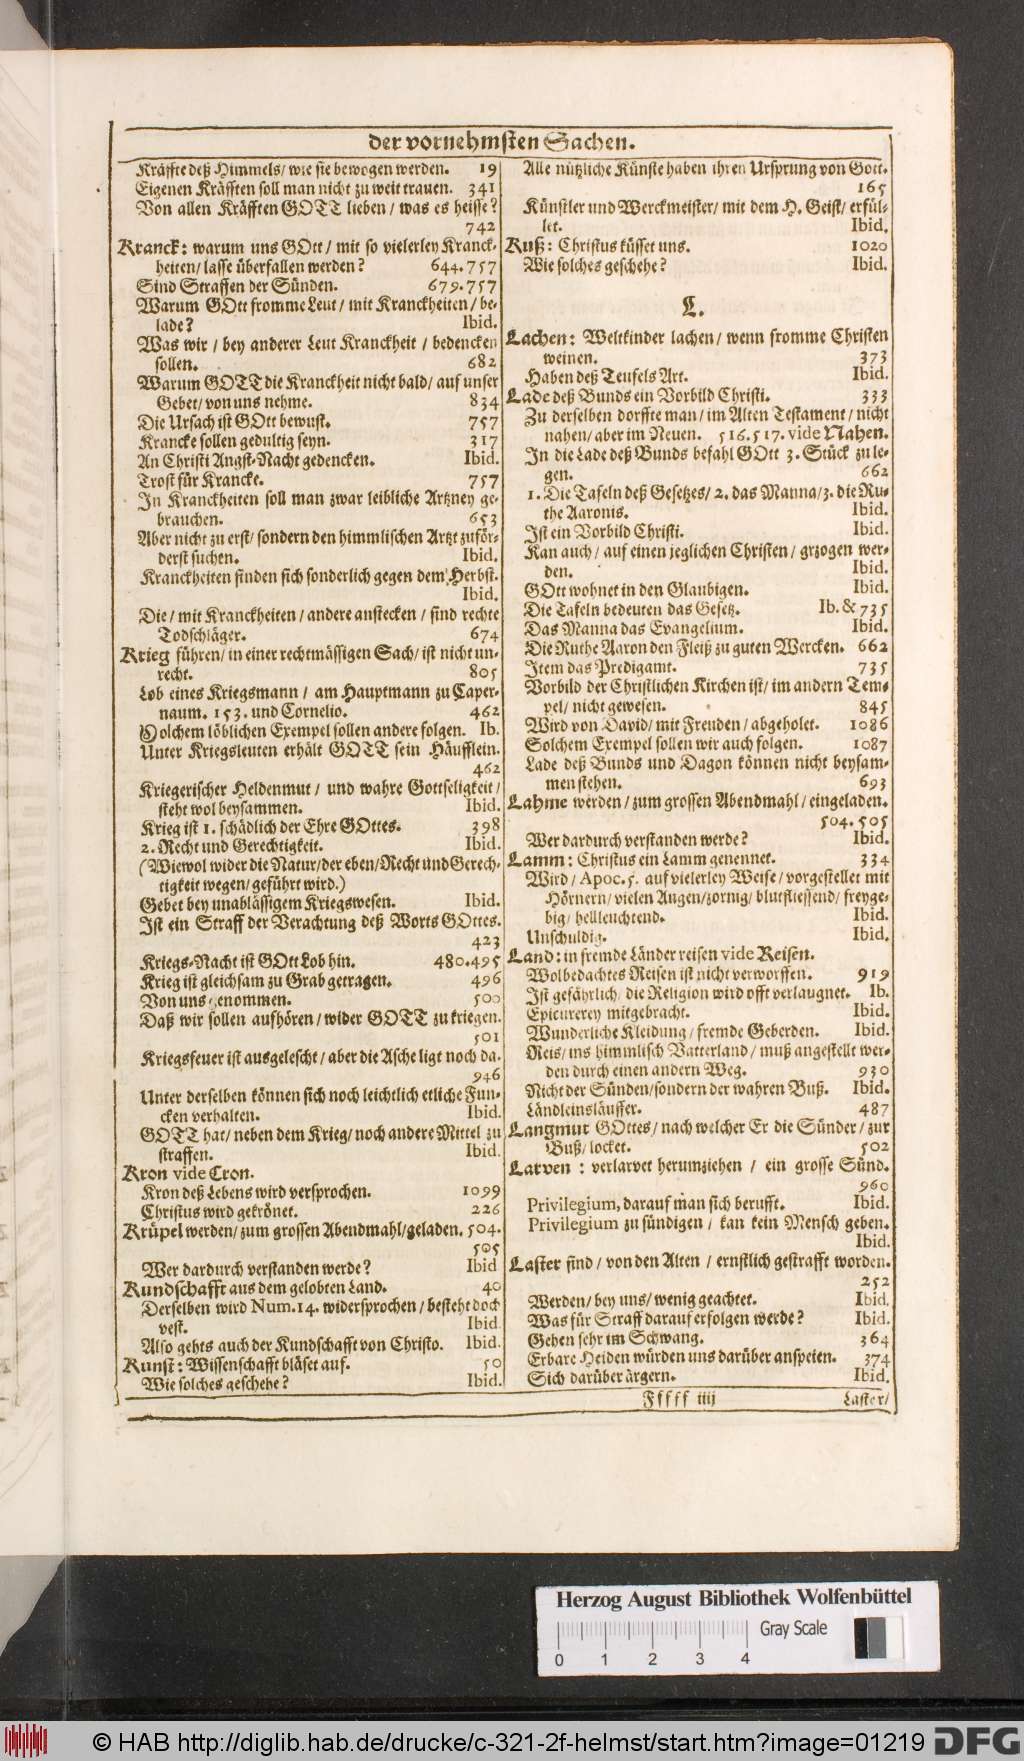 der vornehmsten Sachen.
Kräffte deß Himmels/ wie sie bewogen werden. 19
Eigenen Kräfften soll man nicht zu weit trauen. 341
Von allen Kräfften GOTT lieben / was es heisse?
742
Kranck: warum uns GOtt / mit so vielerley Kranck-
heiten/ lasse überfallen werden? 644.757
Sind Straffen der Sünden. 679.757
Warum GOtt fromme Leut / mit Kranckheiten / be-
lade? Ibid.
Was wir / bey anderer Leut Kranckheit / bedencken
sollen. 682
Warum GOTT die Kranckheit nicht bald/ auf unser
Gebet/ von uns nehme. 834
Die Ursach ist GOtt bewust. 757
Krancke sollen gedultig seyn. 317
An Christi Angst-Nacht gedencken. Ibid.
Trost für Krancke. 757
In Kranckheiten soll man zwar leibliche Artzney ge-
brauchen. 653
Aber nicht zu erst/ sondern den himmlischen Artzt zuför-
derst suchen. Ibid.
Kranckheiten finden sich sonderlich gegen dem Herbst.
Ibid.
Die / mit Kranckheiten / andere anstecken / sind rechte
Todschläger. 674
Krieg führen/ in einer rechtmässigen Sach/ ist nicht un-
recht. 805
Lob eines Kriegsmann / am Hauptmann zu Caper-
naum. 153. und Cornelio. 462
Solchem löblichen Exempel sollen andere folgen. Ib.
Unter Kriegsleuten erhält GOTT sein Häufflein.
462
Kriegerischer Heldenmut / und wahre Gottseligkeit /
steht wol beysammen. Ibid.
Krieg ist 1. schädlich der Ehre GOttes. 398
2. Recht und Gerechtigkeit. Ibid.
(Wiewol wider die Natur/der eben/Recht und Gerech-
tigkeit wegen/ geführt wird.)
Gebet bey unablässigem Kriegswesen. Ibid.
Ist ein Straff der Verachtung deß Worts GOttes.
423
Kriegs-Nacht ist GOtt Lob hin. 480.495
Krieg ist gleichsam zu Grab getragen. 496
Von uns genommen. 500
Daß wir sollen aufhören / wider GOTT zu kriegen.
501
Kriegsfeuer ist ausgelescht / aber die Asche ligt noch da.
946
Unter derselben können sich noch leichtlich etliche Fun-
cken verhalten. Ibid.
GOTT hat/ neben dem Krieg/ noch andere Mittel zu
straffen. Ibid.
Kron vide Cron.
Kron deß Lebens wird versprochen. 1099
Christus wird gekrönet. 226
Krüpel werden/ zum grossen Abendmahl/geladen. 504.
505
Wer dardurch verstanden werde? Ibid
Kundschafft aus dem gelobten Land. 40
Derselben wird Num. 14. widersprochen / besteht doch
vest. Ibid.
Also gehts auch der Kundschafft von Christo. Ibid.
Kunst: Wissenschafft bläset auf. 50
Wie solches geschehe? Ibid.
Alle nützliche Künste haben ihren Ursprung von Gott.
165
Künstler und Werckmeister/ mit dem H. Geist/ erfül-
let. Ibid.
Kuß: Christus küsset uns. 1020
Wie solches geschehe? Ibid.
L.
Lachen: Weltkinder lachen/ wenn fromme Christen
weinen. 373
Haben deß Teufels Art. Ibid.
Lade deß Bunds ein Vorbild Christi. 333
Zu derselben dorffte man / im Alten Testament / nicht
nahen/ aber im Neuen. 516.517. vide Nahen.
In die Lade deß Bunds befahl GOtt 3. Stück zu le-
gen. 662
1. Die Tafeln deß Gesetzes/ 2. das Manna/3. die Ru-
the Aaronis. Ibid.
Ist ein Vorbild Christi. Ibid.
Kan auch / auf einen jeglichen Christen / gezogen wer-
den. Ibid.
GOtt wohnet in den Glaubigen. Ibid.
Die Tafeln bedeuten das Gesetz. Ib. & 735
Das Manna das Evangelium. Ibid.
Die Ruthe Aaron den Fleiß zu guten Wercken. 662
Item das Predigamt. 735
Vorbild der Christlichen Kirchen ist/ im andern Tem-
pel/ nicht gewesen. 845
Wird von David/ mit Freuden / abgeholet. 1086
Solchem Exempel sollen wir auch folgen. 1087
Lade deß Bunds und Dagon können nicht beysam-
men stehen. 693
Lahme werden / zum grossen Abendmahl / eingeladen.
504.505
Wer dardurch verstanden werde? Ibid.
Lamm: Christus ein Lamm genennet. 334
Wird / Apoc. 5. auf vielerley Weise / vorgestellet mit
Hörnern/ vielen Augen/zornig/ blutfliessend/ freyge-
big/ hellleuchtend. Ibid.
Unschuldig. Ibid.
Land: in fremde Länder reisen vide Reisen.
Wolbedachtes Reisen ist nicht verworffen. 919
Ist gefährlich/ die Religion wird offt verlaugnet. Ib.
Epicurerey mitgebracht. Ibid.
Wunderliche Kleidung/ fremde Geberden. Ibid.
Reis/ ins himmlisch Vatterland / muß angestellt wer-
den durch einen andern Weg. 930
Nicht der Sünden/sondern der wahren Buß. Ibid.
Ländleinsläuffer. 487
Langmut GOttes/ nach welcher Er die Sünder / zur
Buß/ locket. 502
Larven : verlarvet herumziehen / ein grosse Sünd.
960
Privilegium, darauf man sich berufft. Ibid.
Privilegium zu sündigen / kan kein Mensch geben.
Ibid.
Laster sind / von den Alten / ernstlich gestrafft worden.
252
Werden/ bey uns/ wenig geachtet. Ibid.
Was für Straff darauf erfolgen werde? Ibid.
Gehen sehr im Schwang. 364
Erbare Heiden würden uns darüber anspeien. 374
Sich darüber ärgern. Ibid.
Fffff iiij Laster/
Herzog August Bibliothek Wolfenbüttel
Gray Scale
0 1 2 3 4
© HAB http://diglib.hab.de/drucke/c-321-2f-helmst/start.htm?image=01219 DFG